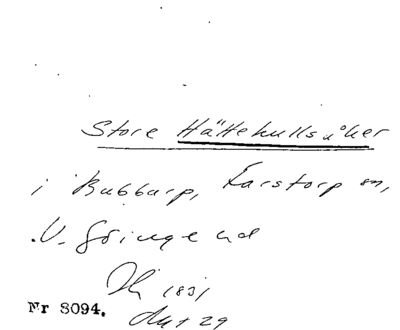 Store Hättehullsåker
i Bubbarp, Farstorp sn,
V. Göinge hd
1831
Nr 8094.
Akt 29